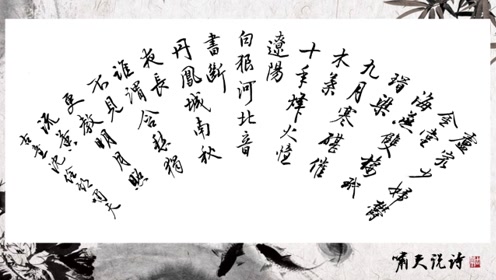 盧家少婦鬱
金堂
海燕雙棲玳
瑁梁
九月寒碪催
木葉
十年烽火憶
遼陽
白狼河北音
書斷
丹鳳城南秋
夜長
誰謂含愁獨
不見
更教明月照
流黃
古意沈佺期嘯天
嘯天说诗